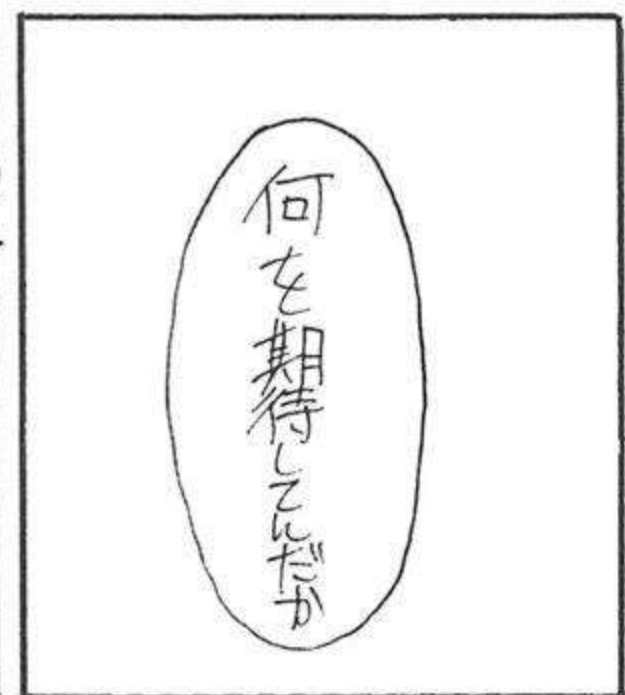 何を期待してんだか